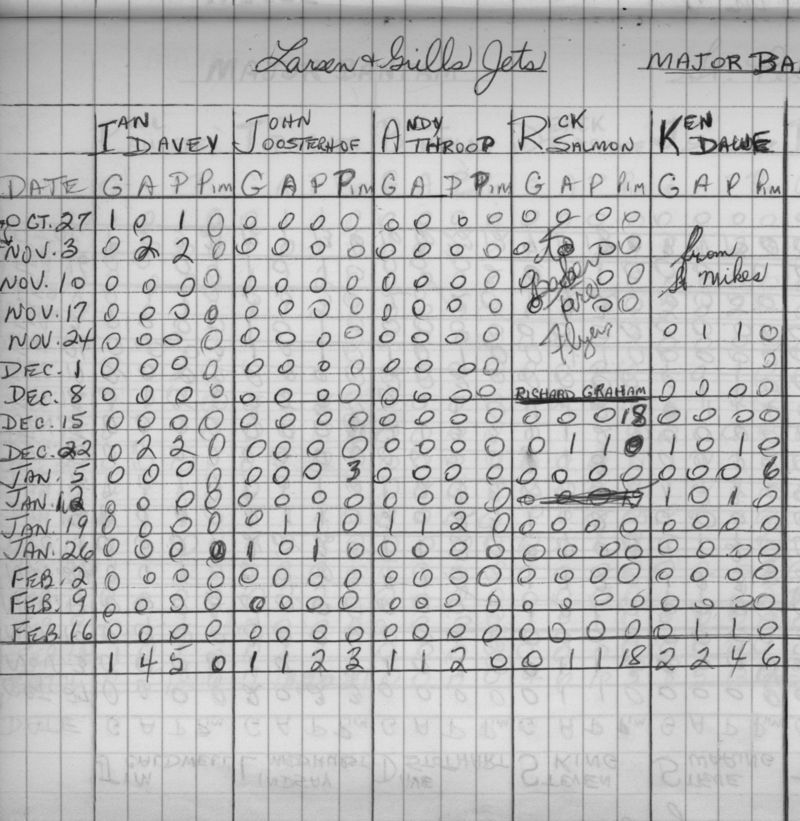 Larsen & Grills Jets MAJOR BA
IAN DAVEY JOHN OOSTERHOF ANDY THROOP RICK SALMON KEN
DATE G A P Pim G A P Pim G A P Pim G A P Pim G A P Pim
OCT. 27 1 0 1 0 0 0 0 0 0 0 0 0 0 0 0 0
NOV. 3 0 2 2 0 0 0 0 0 0 0 0 0 0 to 0 0 from
NOV. 10 0 0 0 0 0 0 0 0 0 0 0 0 0 0 0 St mikes
NOV. 17 0 0 0 0 0 0 0 0 0 0 0 0 0 0 0
NOV. 24 0 0 0 0 0 0 0 0 0 0 0 0 flyers 0 1 1 0
DEC. 1 0 0 0 0 0 0 0 0 0 0 0 0 0
DEC. 8 0 0 0 0 0 0 0 0 0 0 0 0 RICHARD GRAHAM 0 0 0 0
DEC. 15 0 0 0 0 0 0 0 0 0 0 0 0 0 0 0 18 0 0 0 0
DEC. 22 0 2 2 0 0 0 0 0 0 0 0 0 0 1 1 0 1 0 1 0
JAN. 5 0 0 0 0 0 0 0 3 0 0 0 0 0 0 0 0 0 0 0 6
JAN. 12 0 0 0 0 0 0 0 0 0 0 0 0 1 0 1 0
JAN. 19 0 0 0 0 0 1 1 0 1 1 2 0 0 0 0 0 0 0 0 0
JAN. 26 0 0 0 0 1 0 1 0 0 0 0 0 0 0 0 0 0 0 0 0
FEB. 2 0 0 0 0 0 0 0 0 0 0 0 0 0 0 0 0 0 0 0 0
FEB. 9 0 0 0 0 0 0 0 0 0 0 0 0 0 0 0 0 0 0 0 0
FEB. 16 0 0 0 0 0 0 0 0 0 0 0 0 0 0 0 0 0 1 1 0
1 4 5 0 1 1 2 3 1 1 2 0 0 1 1 18 2 2 4 6